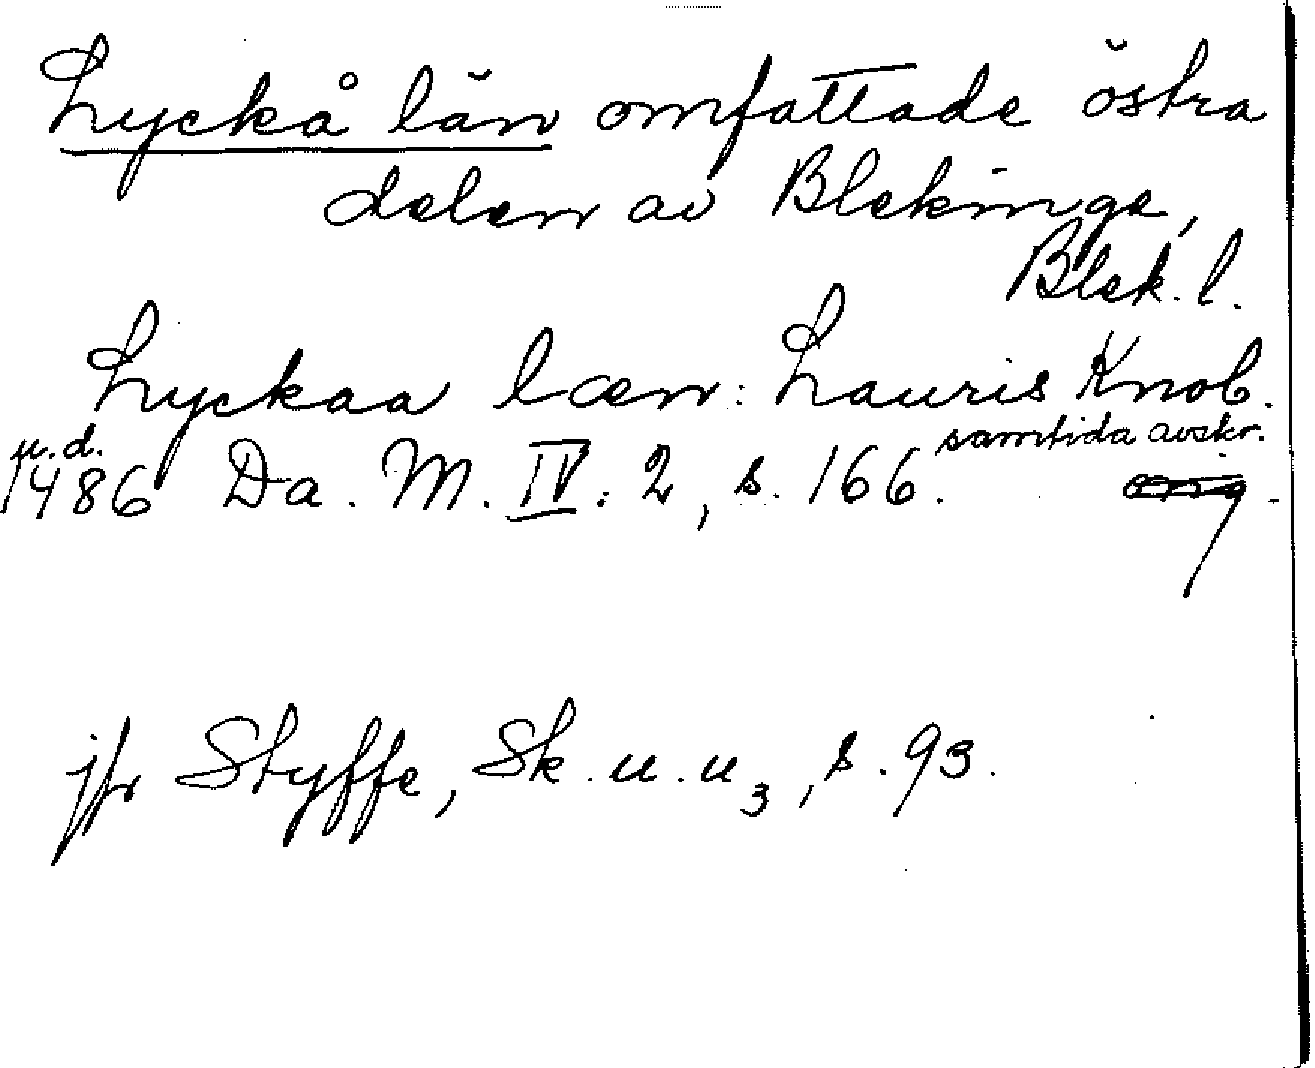 Lyckå län omfattade östra
delen av Blekinge,
Blek. l.
Lyckaa læn: Lauris Knob.
u.d. samtida avskr.
1486 Da. M. IV: 2, s. 166. orig.
jfr Styffe, Sk. u. u3, s. 93.